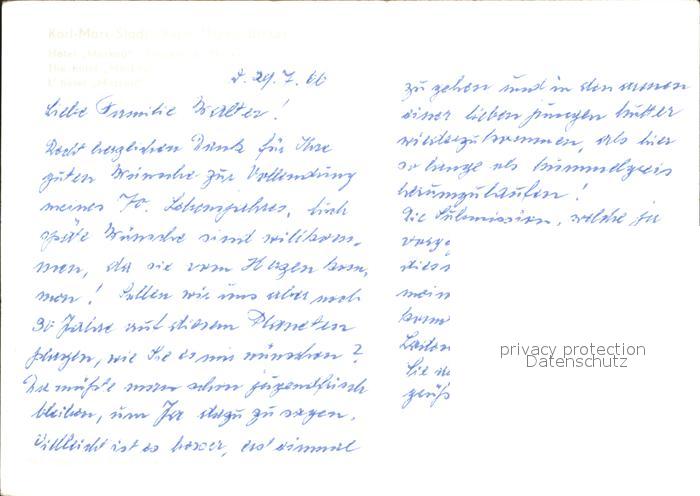 Karl-Marx-Stadt
d. 29.7.66
Liebe Familie Walter!
Recht herzlichen Dank für Ihre
guten Wünsche zur Vollendung
meines 70. Lebensjahres. Auch
späte Wünsche sind willkom-
men, da sie vom Herzen kom-
men! Sollen wir uns aber noch
30 Jahre auf diesem Planeten
plagen, wie Sie es mir wünschen?
Da müßte man schon jugendfrisch
bleiben, um Ja dazu zu sagen.
Vielleicht ist es besser, erst einmal
zu gehen und in den Armen
einer lieben jungen Mutter
wiederzukommen, als hier
so lange als Tummelgreis
herumzulaufen!
Die Submission, welche ja
dies
mein
komm
Sie
grüß
privacy protection
Datenschutz